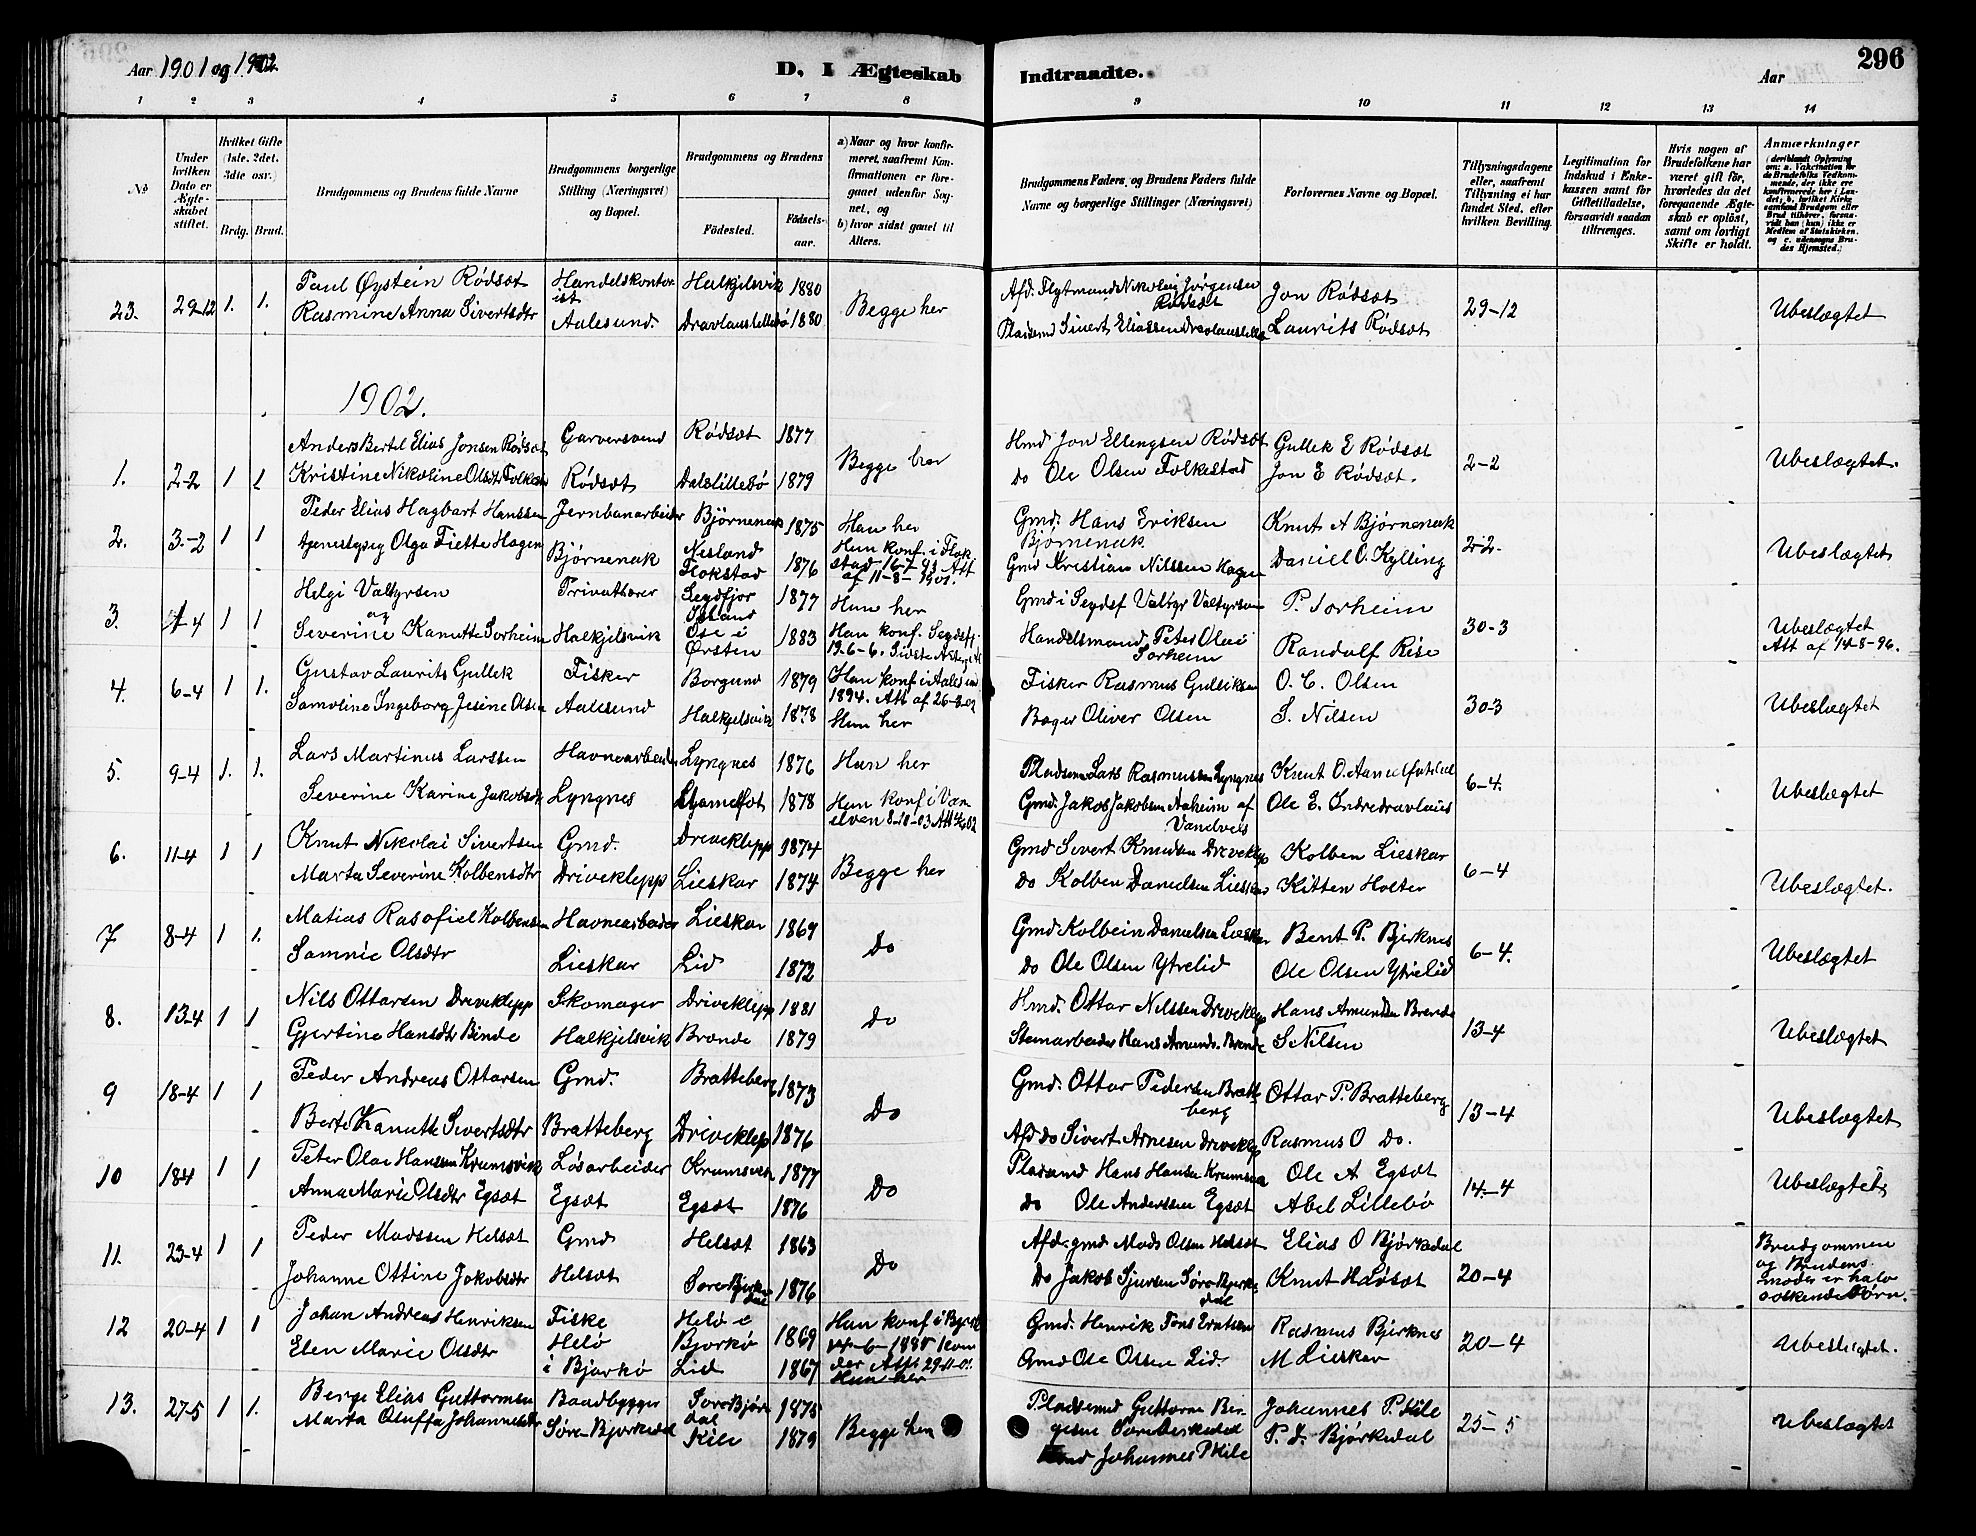 Aar 1901 og 1902
D. I Ægteskab
Indtraadte.
Aar
296
1 2 3 4 5 6 7 8 9 10 11 12 13 14
No
Under hvilken Dato er Ægteskabet stiftet.
Hvilket Gifte (1ste, 2det, 3die osv.)
Brdg. Brud.
Brudgommens og Brudens fulde Navne
Brudgommens borgerlige Stilling (Næringsvei) og Bopæl.
Brudgommens og Brudens
Fødested.
Fødselsaar.
a) Naar og hvor konfirmeret, saafremt Konfirmationen er foregaaet udenfor Sognet, og
b) hvor sidst gaaet til Alters.
Brudgommens Faders, og Brudens Faders fulde Navne og borgerlige Stillinger (Næringsvei)
Forlovernes Navne og Bopæl.
Tillysningsdagene eller, saafremt Tillysning ei har fundet Sted, efter hvilken Bevilling.
Legitimation for Indskud i Enkekassen samt for Giftetilladelse, forsaavidt saadan tiltrænges.
Hvis nogen af Brudefolkene har været gift før, hvorledes da det foregaaende Ægteskab er opløst, samt om lovligt Skifte er holdt.
Anmærkninger
23. 29-12 1. 1. Paul Øystein Rødsæt Handelskontorist Halkjelsvik 1880 Begge her Afd. Flytmand Nikolai Jørgensen Rødsæt Jon Rødsæt 29-12 Ubeslægtet
Rasmine Anna Sivertsdtr Aalesund. Dravlauslillebø 1880 Pladsmd Sivert Eliassen Dravlauslille Laurits Rødsæt
1902.
1. 2-2 1 1 Anders Bertel Elias Jonsen Rødsæt Garversvend Rødsæt 1877 Begge her Hmd Jon Ellingsen Rødsæt Gullek E Rødsæt 2-2 Ubeslægtet.
Kristine Nikoline Olsdtr Folkestad Rødsæt Dalslillebø 1879 Do Ole Olsen Folkestad Jon E Rødsæt.
2. 3-2 1 1 Peder Elias Hagbart Hanssen Jernbanarbeider Bjørnenak 1875 Han her Gmd. Hans Eriksen Bjørnenak Knut A Bjørnenak 2-2. Ubeslægtet
Olga Fiette Hagen Bjørnenak Nesland Flakstad 1876 Hun konf. i Flakstad 16-7-93 Att af 11-8-1901. Gmd Kristian Nilssen Hagen Daniel O. Kylling
3. 4-4 1 1 Helgi Valtyrsen og Privatlærer Seydfjor Island 1877 Han her Gmd i Seydsf Valtyr Valtyrson P. Sorheim 30-3 Ubeslægtet
Severine Kanutte Sorheim Halkjelsvik Ose i Ørsten 1883 Handelsmand Peter Olai Sorheim Randulf Rise Att af 14-8-96.
4. 6-4 1 1. Gustav Laurits Gullek Fisker Borgund 1879 Han konf i Aalesund 1894. Att af 26-3-02 Fisker Rasmus Guleiksen O. C. Olsen 30-3 Ubeslægtet
Samoline Ingeborg Jesine Olsen Aalesund Halkjelsvik 1878 Hun her Bager Oliver Olsen S. Nilsen
5. 9-4 1. 1. Lars Martinus Larssen Havnearbeider Lyngnes 1876 Han her Pladsm Lars Rasmussen Lyngnes Knut O. Aamelfotslid 6-4. Ubeslægtet
Severine Karine Jakobsdt Lyngnes Aamelfot 1878 Hun konf i Vanelven Gmd. Jakob Jakobsen Aaheim af Vandvens Ole E. Indredravlaus
6. 11-4 1 1 Knut Nikolai Sivertsen Gmd. Driveklepp 1874 Begge her Gmd Sivert Knudsen Driveklep Kolben Lieskar 6-4 Ubeslægtet.
Marta Severine Kolbensdtr Driveklepp Lieskar 1874 Do Kolben Danielsen Lieskar Kitten Holter
7 8-4 1 1. Matias Rasofiel Kolbensen Havnearbeider Lieskar 1869 Do Gmd Kolbein Danielsen Lieskar Bent P. Bjerknes 6-4. Ubeslægtet
Samnie Olsdtr Lieskar Lid 1872 Do Ole Olsen Ytrelid Ole Olsen Ytrelid
8. 13-4 1 1 Nils Ottarsen Driveklepp Skomager Driveklepp 1881 Do Hmd. Ottar Nilssen Driveklep Hans Amundsen Brende 13-4 Ubeslægtet
Gjertine Hansdtr Binde Halkjelsvik Brende 1879 Stenarbeider Hans Amunds. Brende S Nilsen
9 18-4 1 1 Peder Andreas Ottarsen Gmd. Bratteberg 1873 Do Gmd. Ottar Pedersen Bratteberg Ottar P. Bratteberg 13-4 Ubeslægtet
Berte Kanutte Sivertsdtr Bratteberg Driveklep 1876 Afd Do Sivert Arnesen Driveklep Rasmus O Do.
10 18-4 1 1 Peter Olai Hansen Krumsvik Løsarbeider Krumsvik 1877 Do Pladsmd Hans Hansen Krumsvik Ole A Egsæt 14-4 Ubeslægtet
Anna Marie Olsdtr Egsæt Egsæt Egsæt 1876 Do Ole Anderssen Egsæt Abel Lillebø
11. 23-4 1 1 Peder Madssen Helsæt Gmd Helsæt 1863 Do Afd. gmd Mads Olsen Helsæt Elias O Bjørkedal 20-4 Brudgommen og Brudens moder er halvsøskendebørn.
Johanne Ottine Jakobsdtr Helsæt Søre Bjerkedal 1876 Do Jakob Sjursen Søre Bjerkedal Knut Helsæt
12 20-4 1 1 Johan Andreas Henriksen Fisker Helø i Bjorkø 1869 Gmd. Henrik Rasmus Bjerknes 20-4 Ubeslægtet.
Elen Marie Olsdtr Helø i Bjørkø Lid 1867 Hun her Gmd Ole Olsen Lid. M Lieskar
13. 27-5 1 1. Berge Elias Guttormsen Baadbygger Søre Bjørkedal 1875 Begge her Pladsmd Guttorm Bergesen Sørebjerkedal Johannes P. Kile 25-5 Ubeslægtet
Marta Oluffa Johannesdtr Søre-Bjørkedal Kile 1879 Johannes P Kile P. J. Bjørkedal